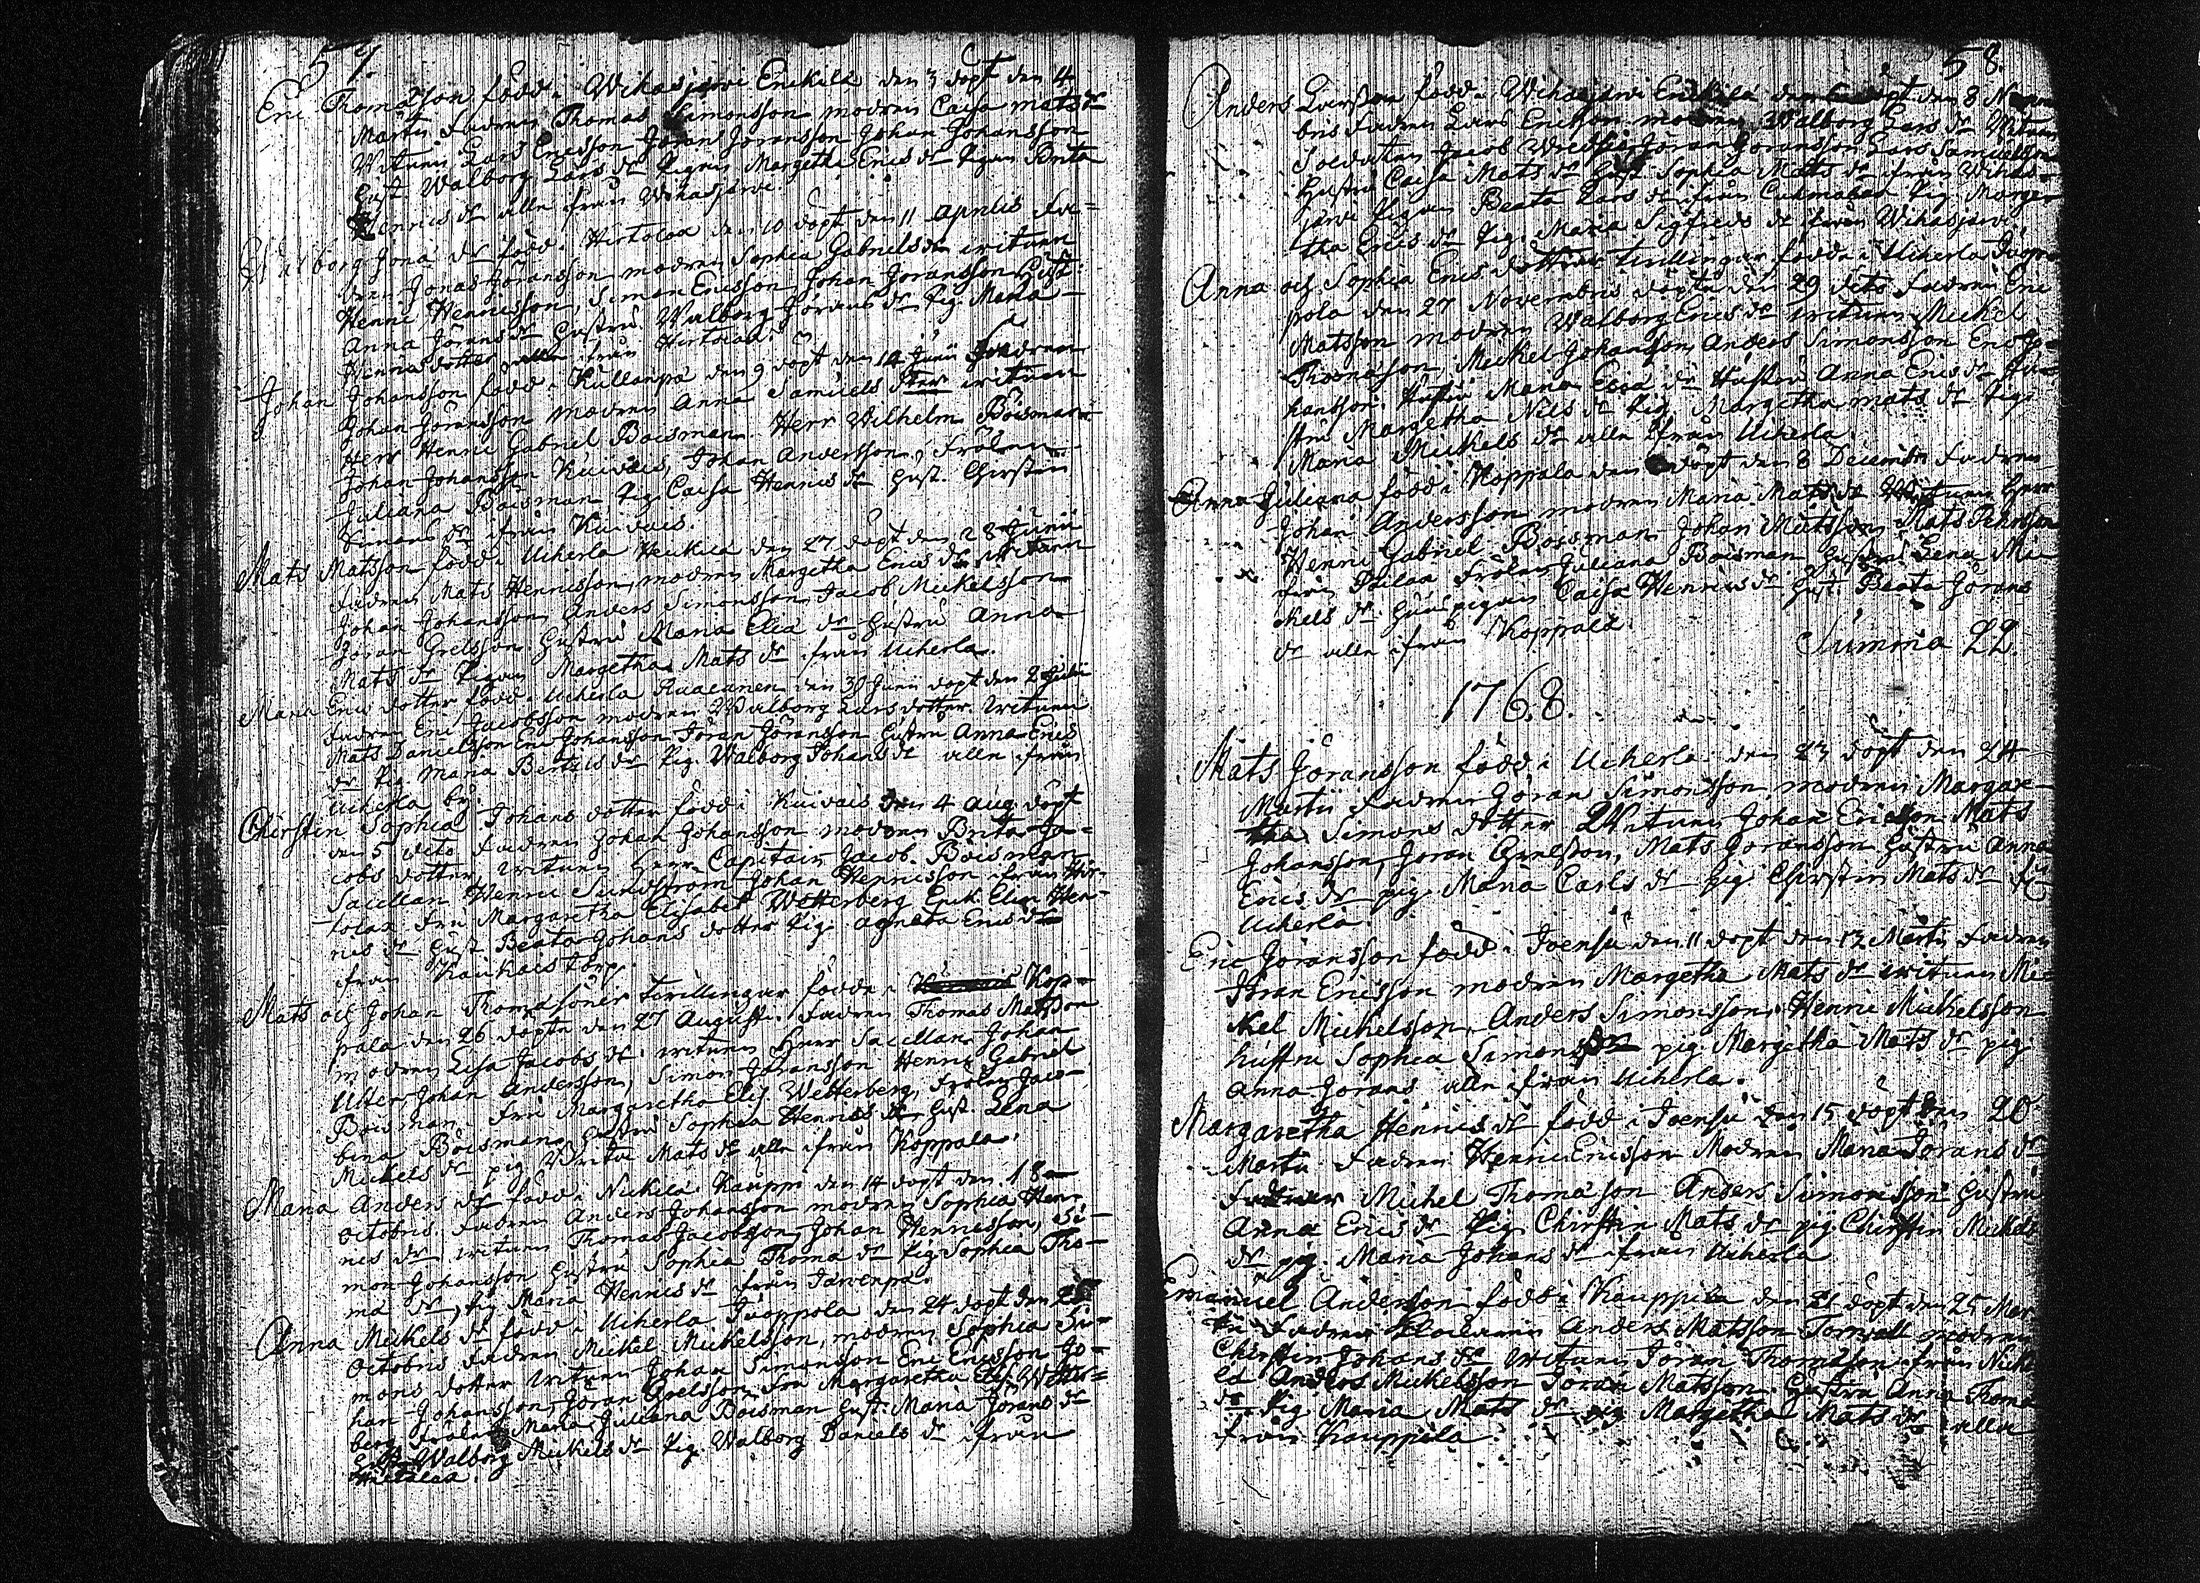 57.
Eric Thomasson född i Wihasjärwi Erickilä den 3 döpt den 4
Martii Fadren Thomas Simonsson modren Caisa Mats dr
Witnen Lars Ericsson Jöran Jöransson Johan Johansson
Hust. Walborg Lars dr Pigan Margetha Erics dr Pigan Brita
Hennics dr alla ifrån Wihasjärwi.
Walborg Jona dr född i Hirtolaa den 10 döpt den 11 Aprilis Fa-
dren Jonas Jöransson modren Sophia Gabriels dr witnen
Henric Hennicsson, Simon Ericsson, Johan Jöransson Hust.
Anna Jörans dr Hustru Walborg Jörans dr Pig. Maria
Hennics dotter alla ifrån Hirtolaa.
Johan Johansson född i Kullanpä den 9 döpt den 12 Junii Fadren
Johan Jöransson modren Anna Samuels dter witnen
Herr Henric Gabriel Boisman. Herr Wilhelm Boisman
Johan Johansson Kuivais, Johan Andersson, Frölen
Juliana Boisman Pig. Caisa Hennics dr Hust. Chirstin
Simons dr ifrån Kuivais.
Mats Matsson född i Ucherla Heickilä den 27 döpt den 28 Junii
Fadren Mats Hennicsson, modren Margetha Erics dr witnen
Johan Johansson Anders Simonsson Jacob Mickelsson
Jöran Grelsson Hustru Maria Elia dr Hustru Anna
Mats dr Pigan Margetha Mats dr ifrån Ucherla.
Maria Erics dotter född i Ucherla den 30 Junii döpt den 2 Julii
Fadren Eric Jacobsson modren Walborg Larsdotter. Witnen
Mats Danielsson Eric Johansson Jöran Jöransson Hustru Anna Erics
dr Pig. Maria Bertils dr Pig. Walborg Johans dr alla ifrån
Ucherla by.
Chirstin Sophia Johans dotter född i Kuivais den 4 Aug. döpt
den 5 dito Fadren Johan Johansson modren Brita Ja-
cobs dotter, witnen Herr Capitain Jacob Boisman
Sacellan Henric Sundström Johan Hennicsson ifrån Hir-
tolaa Fru Margaretha Elisabet Wetterberg Elin Hen-
nics dr Hust. Beata Johans dotter Pig. Agneta Erics dr
ifrån
Mats och Johan Thomasöner twillingar födde i Kop-
pala den 26 döpte den 27 Augusti. Fadren Thomas Matsson
modren Lisa Jacobs dr. witnen Herr Sacellan Johan
Uter, Johan Andersson, Simon Jöransson Henric Gabriel
Boisman. Fru Margaretha Elis. Wetterberg, Frölen Jaco-
bina Boisman, Hustru Sophia Hennics dr Hust. Lena
Mickels dr pig. Brita Mats dr alla ifrån Koppala.
Maria Anders dr född i Nickilä Kauppi den 14 döpt den 18
Octobris. Fadren Anders Johansson modren Sophia Hen-
nics dr witnen Thomas Jacobsson, Johan Hennicsson, Si-
mon Johansson Hustru Sophia Thoma dr Pig. Sophia Tho-
ma dr, Pig. Maria Hennics dr ifrån Järwenpä.
Anna Mickels dr född i Ucherla Juoppola den 24 döpt den
Octobris Fadren Mickel Mickelsson, modren Sophia Si-
mons dotter witnen Johan Simonsson Eric Ericsson Jo-
han Johansson, Jöran Grelsson, Fru Margaretha Elis. Wetter-
berg Frölen Maria Juliana Boisman Hust. Maria Jörans dr
Walborg Mickels dr Pig. Walborg Daniels dr ifrån
58.
Anders Larsson född i Wihasjärwi Erickilä den döpt den 8 Novem
bris Fadren Lars Ericsson modren Walborg Lars dr Witnen
Soldaten Jacob Wredfri Jöran Jöransson Lars Samuelsson
Hustru Caisa Mats dr Hust. Sophia Mats dr ifrån Wihas-
järwi Pigan Beata Lars dr ifrån Pig. Marge-
tha Erics dr Pig. Maria Sigfreds dr ifrån Wihasjärwi.
Anna och Sophia Erics döttrar twillingar födde i Ucherla Juop-
pola den 27 Novembris döpte den 29 dito Fadren Eric
Matsson modren Walborg Erics dr witnen Mickel
Thomasson, Mickel Johansson, Anders Simonsson Eric Jo-
hansson. Hustru Maria Elia dr Hustru Anna Erics dr Hu-
stru Margetha Nils dr Pig. Margetha Mats dr Pig.
Maria Mickels dr alla ifrån Ucherla.
Anna Juliana född i Koppala den döpt den 3 Decembr. Fadren
Johan Andersson modren Maria Mats dr Witnen Herr
Henric Gabriel Boisman Johan Mattsson, Mats
från Frölen Juliana Boisman Hustru Lena Mi-
ckels dr pigan Caisa Hennics dr Hust. Beata Jörans
dr alla ifrån Koppala.
Summa 22.
1768.
Mats Jöransson född i Ucherla den 23 döpt den 24
Martii Fadren Jöran Simonsson, modren Margare-
tha Simons dotter Witnen Johan Ericsson Mats
Johansson, Jöran Grelsson, Mats Jöransson Hustru Anna
Erics dr pig. Maria Carls dr pig. Chirstin Mats dr fr
Ucherla.
Eric Jöransson född i Joensu den 11 döpt den 13 Martii Fadren
Jöran Ericsson modren Margetha Mats dr witnen Mi-
ckel Mickelsson, Anders Simonsson, Henric Mickelsson
hustru Sophia Simons dr pig. Margetha Mats dr pig.
Anna Jörans alla ifrån Ucherla.
Margaretha Hennics dr född i Joensu den 15 döpt den 20
Martii Fadren Henric Ericsson Modren Maria Jörans dr
Michel Thomasson Anders Simonsson Hustru
Anna Erics dr Pig. Chirstin Mats dr pig. Chirstin Mickels
dr pig. Maria Johans dr ifrån Ucherla
Emanuel Andersson född i Kauppila den 21 döpt den 25 Mar
tii Fadren Anders Matsson Tornvall modren
Chirstin Johans dr Witnen Jöran Thomasson ifrån Nicki
lä Anders Mickelsson Jöran Matsson. Hustru Anna Thoma
dr Pig. Maria Mats dr pig. Margetha Mats dr alla
ifrån Kauppila.